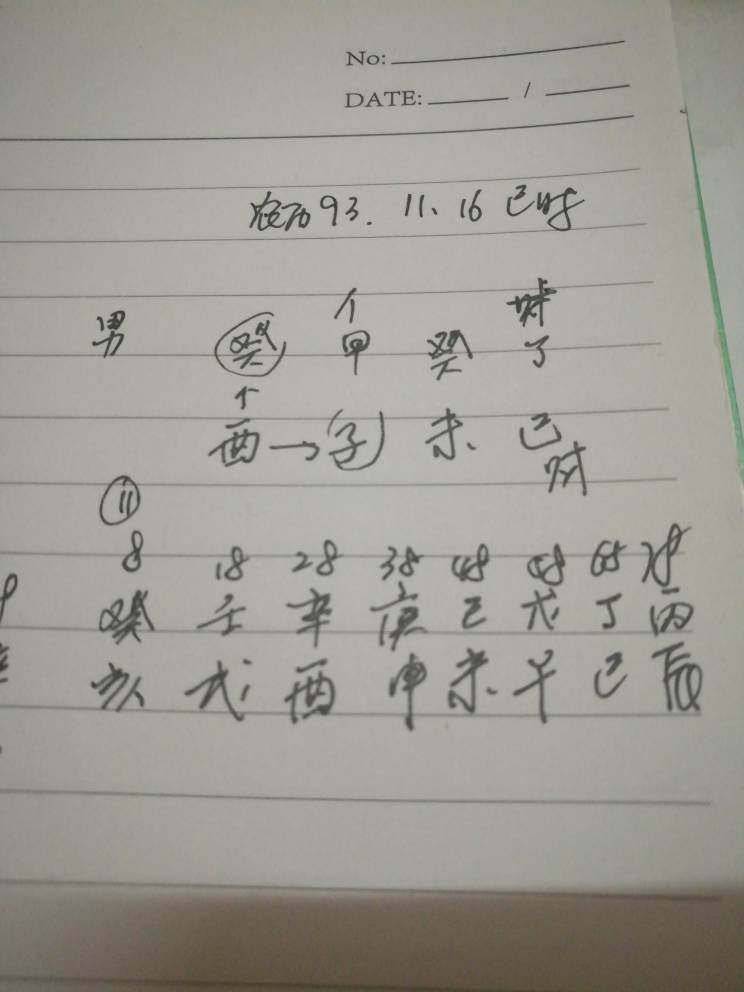 No:
DATE: /
农历93. 11. 16 巳时
财
男 癸 甲 癸 丁
酉→(子) 未 巳
财
11
8 18 28 38 48 58 68 78
癸 壬 辛 庚 己 戊 丁 丙
亥 戌 酉 申 未 午 巳 辰